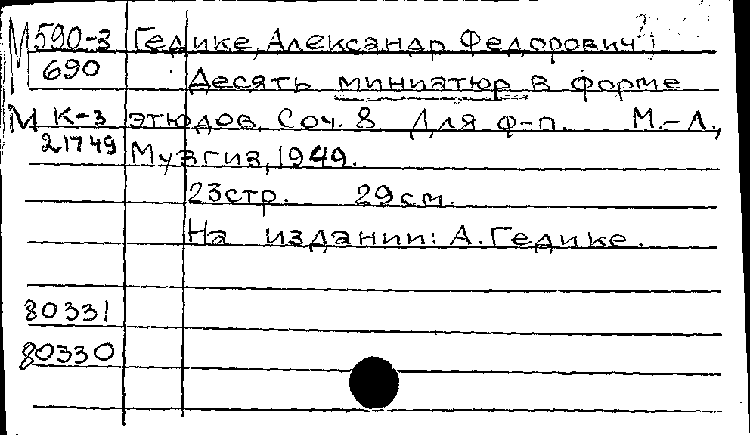 М 590-3 Гедике, Александр Федорович
690 Десять миниатюр в форме
М К-3 этюдов. Соч. 8 Для ф-п. М.-Л.,
21749 Музгиз, 1949.
23стр. 29см.
На издании: А. Гедике.
80331
80330